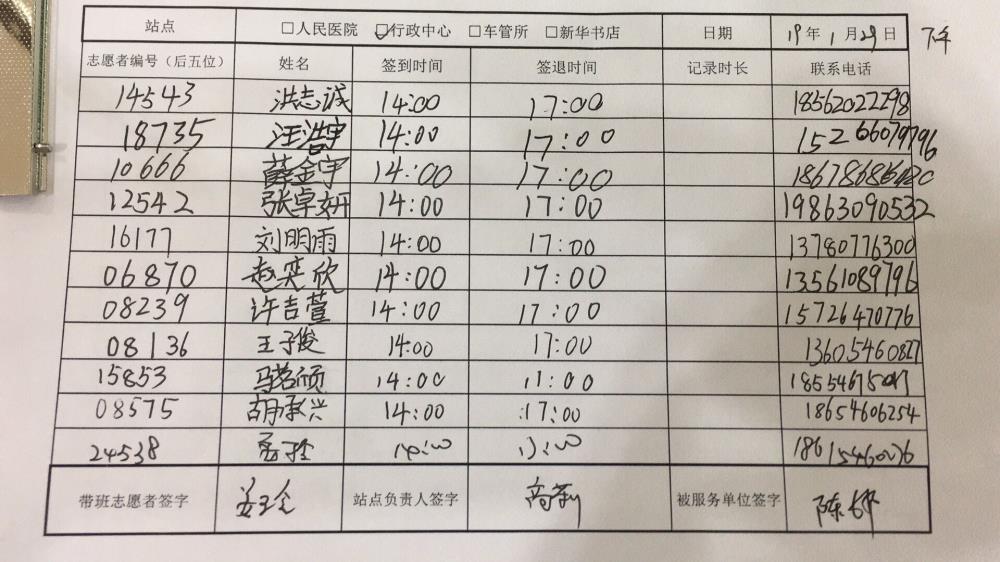 站点 □人民医院 ☑行政中心 □车管所 □新华书店 日期 19年1月29日 下午
志愿者编号（后五位） 姓名 签到时间 签退时间 记录时长 联系电话
14543 洪志诚 14:00 17:00 18562022298
18735 汪浩宇 14:00 17:00 15266079796
10666 薛金宇 14:00 17:00
12542 张卓妍 14:00 17:00 19863090532
16177 刘明雨 14:00 17:00 13780776300
06870 赵奕欣 14:00 17:00 13561089796
08239 许吉萱 14:00 17:00 15726470776
08136 王子俊 14:00 17:00 13605460827
15853 14:00 17:00
08575 胡承兴 14:00 17:00 18654606254
24538 14:00 17:00
带班志愿者签字 站点负责人签字 被服务单位签字